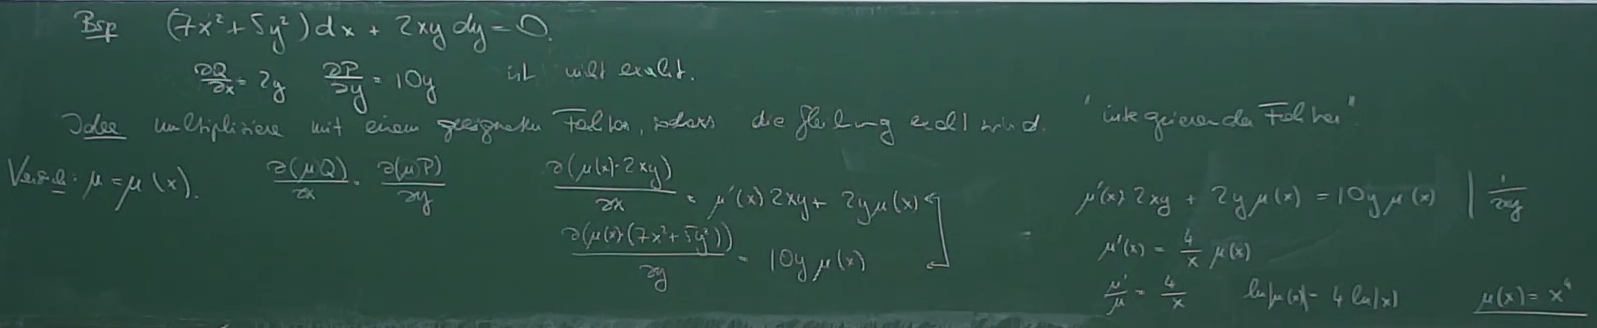 Bsp (7x² + 5y²) dx + 2xy dy = 0.
∂Q/∂x = 2y ∂P/∂y = 10y ist nicht exakt.
Idee multipliziere mit einem geeigneten Faktor, sodass die Gleichung exakt wird. "integrierender Faktor"
Versuch: μ = μ(x). ∂(μQ)/∂x = ∂(μP)/∂y
∂(μ(x)·2xy)/∂x = μ'(x) 2xy + 2y μ(x)
∂(μ(x)(7x² + 5y²))/∂y = 10y μ(x)
μ'(x) 2xy + 2y μ(x) = 10y μ(x) | 1/2xy
μ'(x) = 4/x μ(x)
μ'/μ = 4/x ln|μ(x)| = 4 ln|x| μ(x) = x⁴